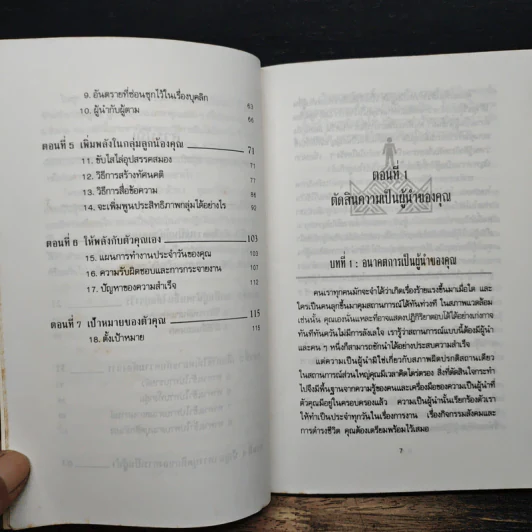 9. อันตรายที่ซ่อนซุกไว้ในเรื่องบุคลิก 63
10. ผู้นำกับผู้ตาม 66
ตอนที่ 5 เพิ่มพลังในกลุ่มลูกน้องคุณ 71
11. ขับไสไล่อุปสรรคสมอง 71
12. วิธีการสร้างทัศนคติ 77
13. วิธีการสื่อข้อความ
14. จะเพิ่มพูนประสิทธิภาพกลุ่มได้อย่างไร 92
ตอนที่ 6 ให้พลังกับตัวคุณเอง 103
15. แผนการทำงานประจำวันของคุณ 103
16. ความรับผิดชอบและการกระจายงาน 107
17. ปัญหาของความสำเร็จ 112
ตอนที่ 7 เป้าหมายของตัวคุณ 115
18. ตั้งเป้าหมาย 115
ตอนที่ 1
ตัดสินความเป็นผู้นำของคุณ
บทที่ 1 : อนาคตการเป็นผู้นำของคุณ
คนเราทุกคนมักจะจำได้ว่าเกิดเรื่องร้ายแรงขึ้นมาเมื่อใด และ
ใครเป็นคนลุกขึ้นมาคุมสถานการณ์ได้ทันท่วงที ในสภาพแวดล้อม
เช่นนั้น คุณเองนั่นแหละที่อาจแสดงปฏิกิริยาตอบโต้ได้อย่างเก่งกาจ
ทันทีทันควันไม่มีการลังเลใจ เรารู้ว่าสถานการณ์แบบนี้ต้องมีผู้นำ
และคน ๆ หนึ่งก็สามารถชักนำได้อย่างประสบความสำเร็จ
แต่ความเป็นผู้นำมิใช่เกี่ยวกับสภาพผิดปรกติสถานเดียว
ในสถานการณ์ส่วนใหญ่คุณมีเวลาคิดไตร่ตรอง สิ่งที่ตัดสินใจกระทำ
ไปจึงมีพื้นฐานจากความรู้ของคนและเครื่องมือของความเป็นผู้นำที่
ตัวคุณมีอยู่ในครอบครองแล้ว ความเป็นผู้นำนั้นเรียกร้องตัวเรา
ให้ทำเป็นประจำทุกวันในเรื่องการงาน เรื่องกิจกรรมสังคมและ
การดำรงชีวิต คุณต้องเตรียมพร้อมไว้เสมอ
7